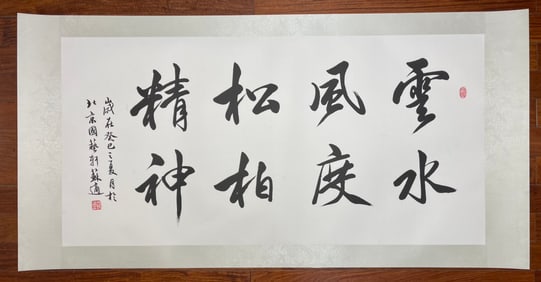 雲水
風度
松柏
精神
歲在癸巳之夏月於
北京國藝軒蘇適